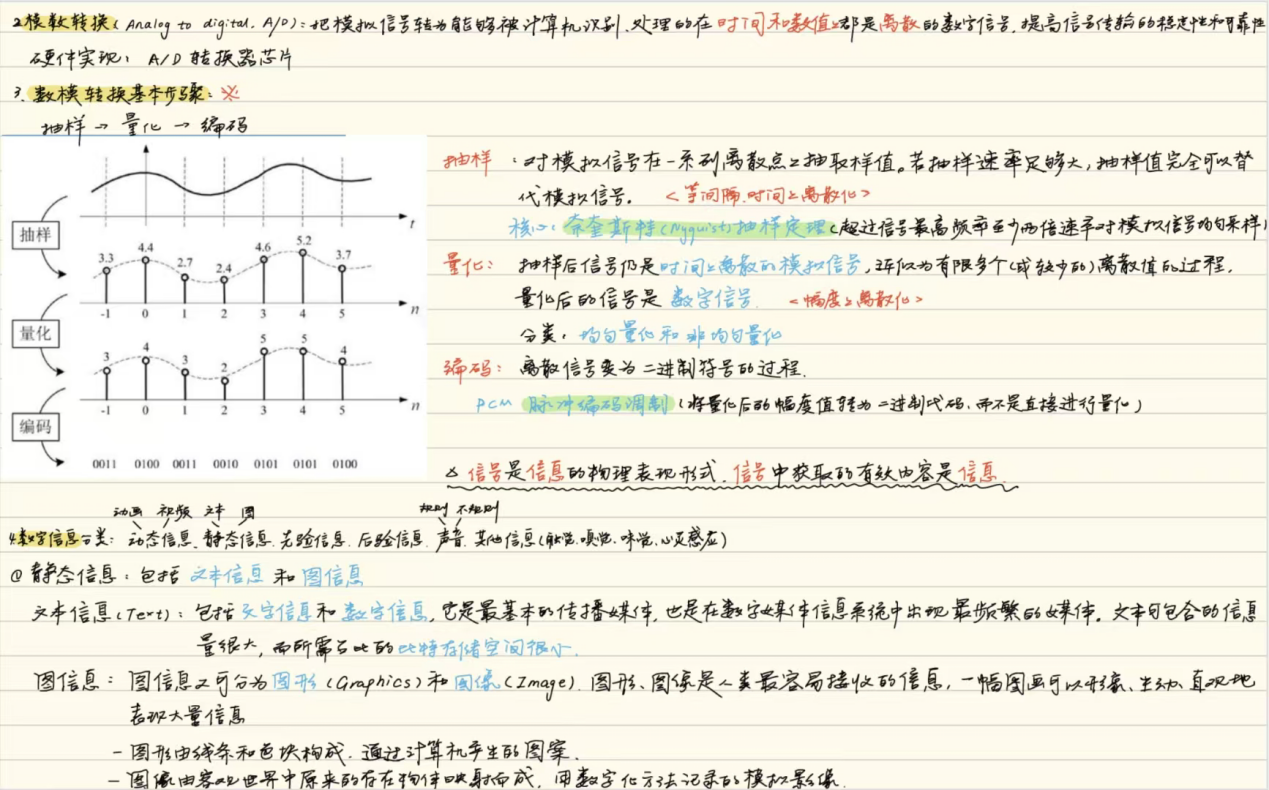 2.模数转换(Analog to digital, A/D):把模拟信号转为能够被计算机识别、处理的在时间和数值上都是离散的数字信号,提高信号传输的稳定性和可靠性
硬件实现: A/D 转换器芯片
3.数模转换基本步骤: ※
抽样 → 量化 → 编码
t
抽样
3.3 4.4 2.7 2.4 4.6 5.2 3.7
-1 0 1 2 3 4 5 n
量化
3 4 3 2 5 5 4
-1 0 1 2 3 4 5 n
编码
0011 0100 0011 0010 0101 0101 0100
抽样:对模拟信号在一系列离散点上抽取样值。若抽样速率足够大,抽样值完全可以替
代模拟信号. <等间隔.时间上离散化>
核心:奈奎斯特(Nyquist)抽样定理(超过信号最高频率至少两倍速率对模拟信号均匀采样)
量化: 抽样后信号仍是时间上离散的模拟信号,近似为有限多个(或较少的)离散值的过程.
量化后的信号是 数字信号. <幅度上离散化>
分类: 均匀量化和非均匀量化
编码: 离散信号变为二进制符号的过程.
PCM 脉冲编码调制(将量化后的幅度值转为二进制代码.而不是直接进行量化)
△ 信号是信息的物理表现形式.信号中获取的有效内容是信息.
动画 视频 文本 图 规则 不规则
4.数字信息分类: 动态信息、静态信息.先验信息.后验信息.声音.其他信息(触觉.嗅觉.味觉.心灵感应)
① 静态信息:包括 文本信息 和 图信息
文本信息(Text): 包括文字信息和数字信息,它是最基本的传播媒体,也是在数字媒体信息系统中出现最频繁的媒体。文本可包含的信息
量很大,而所需占比的比特存储空间很小.
图信息: 图信息又可分为图形(Graphics)和图像(Image).图形、图像是人类最容易接收的信息,一幅图画可以形象、生动、直观地
表现大量信息
- 图形由线条和色块构成.通过计算机产生的图案.
- 图像由客观世界中原来的存在物体映射而成.用数字化方法记录的模拟影像.